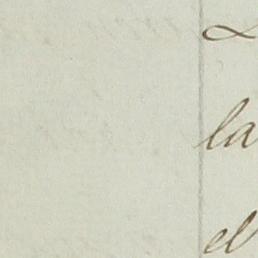 la
el